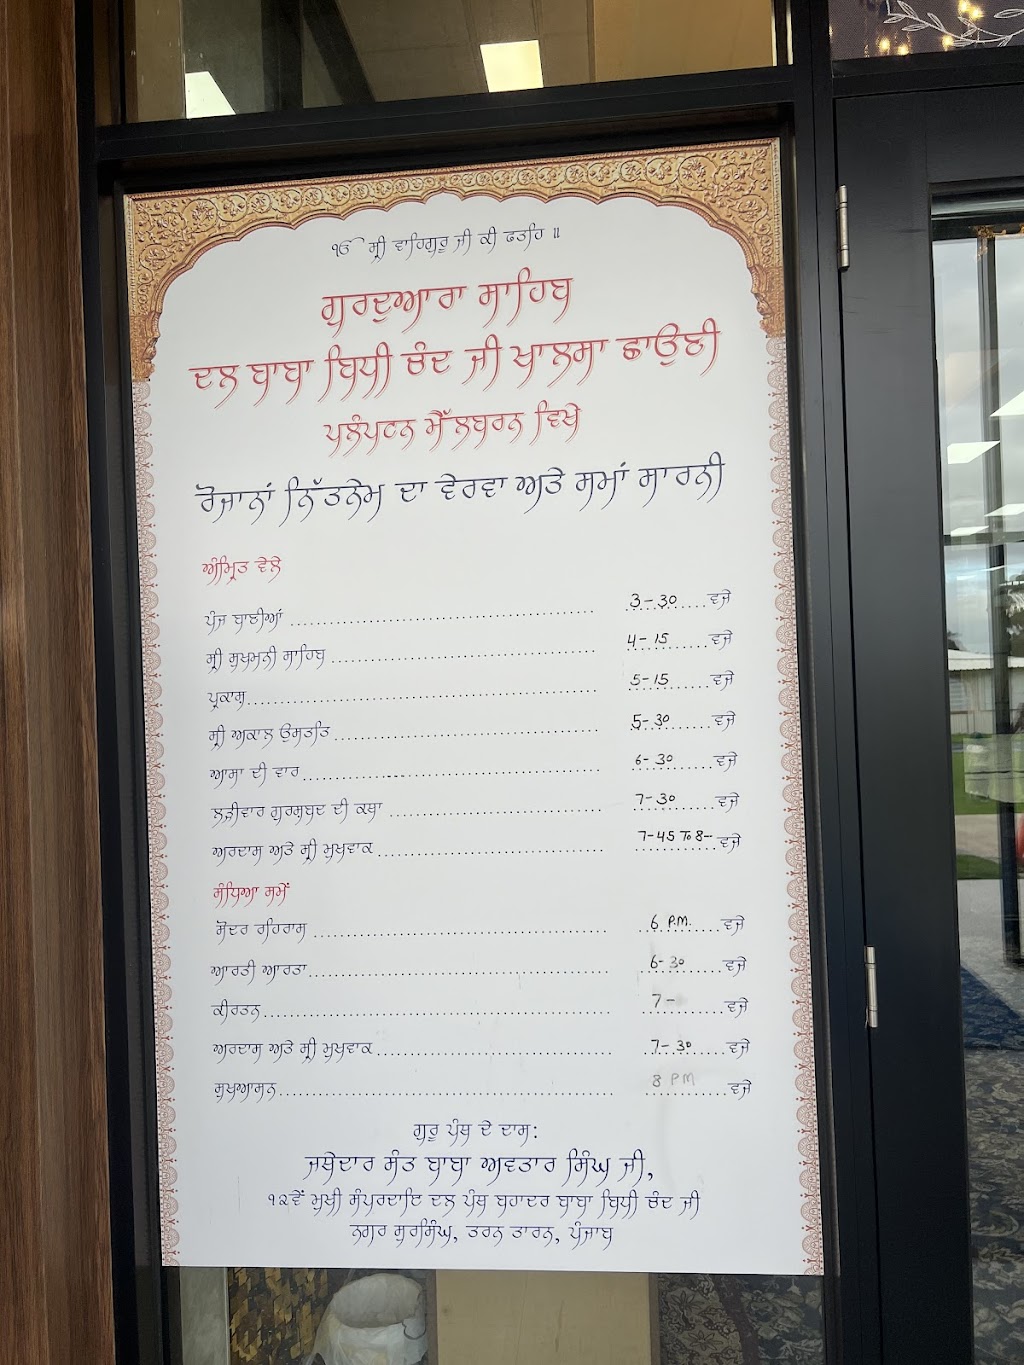 ੴ ਸ੍ਰੀ ਵਾਹਿਗੁਰੂ ਜੀ ਕੀ ਫਤਹਿ ॥
ਗੁਰਦੁਆਰਾ ਸਾਹਿਬ
ਦਲ ਬਾਬਾ ਬਿਧੀ ਚੰਦ ਜੀ ਖਾਲਸਾ ਛਾਉਣੀ
ਪਲੰਪਟਨ ਮੈੱਲਬਰਨ ਵਿਖੇ
ਰੋਜਾਨਾਂ ਨਿੱਤਨੇਮ ਦਾ ਵੇਰਵਾ ਅਤੇ ਸਮਾਂ ਸਾਰਨੀ
ਅੰਮ੍ਰਿਤ ਵੇਲੇ
ਪੰਜ ਬਾਣੀਆਂ 3-30 ਵਜੇ
ਸ੍ਰੀ ਸੁਖਮਨੀ ਸਾਹਿਬ 4-15 ਵਜੇ
ਪ੍ਰਕਾਸ਼ 5-15 ਵਜੇ
ਸ੍ਰੀ ਅਕਾਲ ਉਸਤਤਿ 5-30 ਵਜੇ
ਆਸਾ ਦੀ ਵਾਰ 6-30 ਵਜੇ
ਲੜੀਵਾਰ ਗੁਰਸ਼ਬਦ ਦੀ ਕਥਾ 7-30 ਵਜੇ
ਅਰਦਾਸ ਅਤੇ ਸ੍ਰੀ ਮੁਖਵਾਕ 7-45 To 8- ਵਜੇ
ਸੰਧਿਆ ਸਮੇਂ
ਸੋਦਰ ਰਹਿਰਾਸ 6 P.M. ਵਜੇ
ਆਰਤੀ ਆਰਤਾ 6-30 ਵਜੇ
ਕੀਰਤਨ 7- ਵਜੇ
ਅਰਦਾਸ ਅਤੇ ਸ੍ਰੀ ਮੁਖਵਾਕ 7-30 ਵਜੇ
ਸੁਖਆਸਨ 8 PM ਵਜੇ
ਗੁਰੂ ਪੰਥ ਦੇ ਦਾਸ:
ਜਥੇਦਾਰ ਸੰਤ ਬਾਬਾ ਅਵਤਾਰ ਸਿੰਘ ਜੀ,
੧੨ਵੇਂ ਮੁਖੀ ਸੰਪਰਦਾਇ ਦਲ ਪੰਥ ਬਹਾਦਰ ਬਾਬਾ ਬਿਧੀ ਚੰਦ ਜੀ
ਨਗਰ ਸੁਰਸਿੰਘ, ਤਰਨ ਤਾਰਨ, ਪੰਜਾਬ